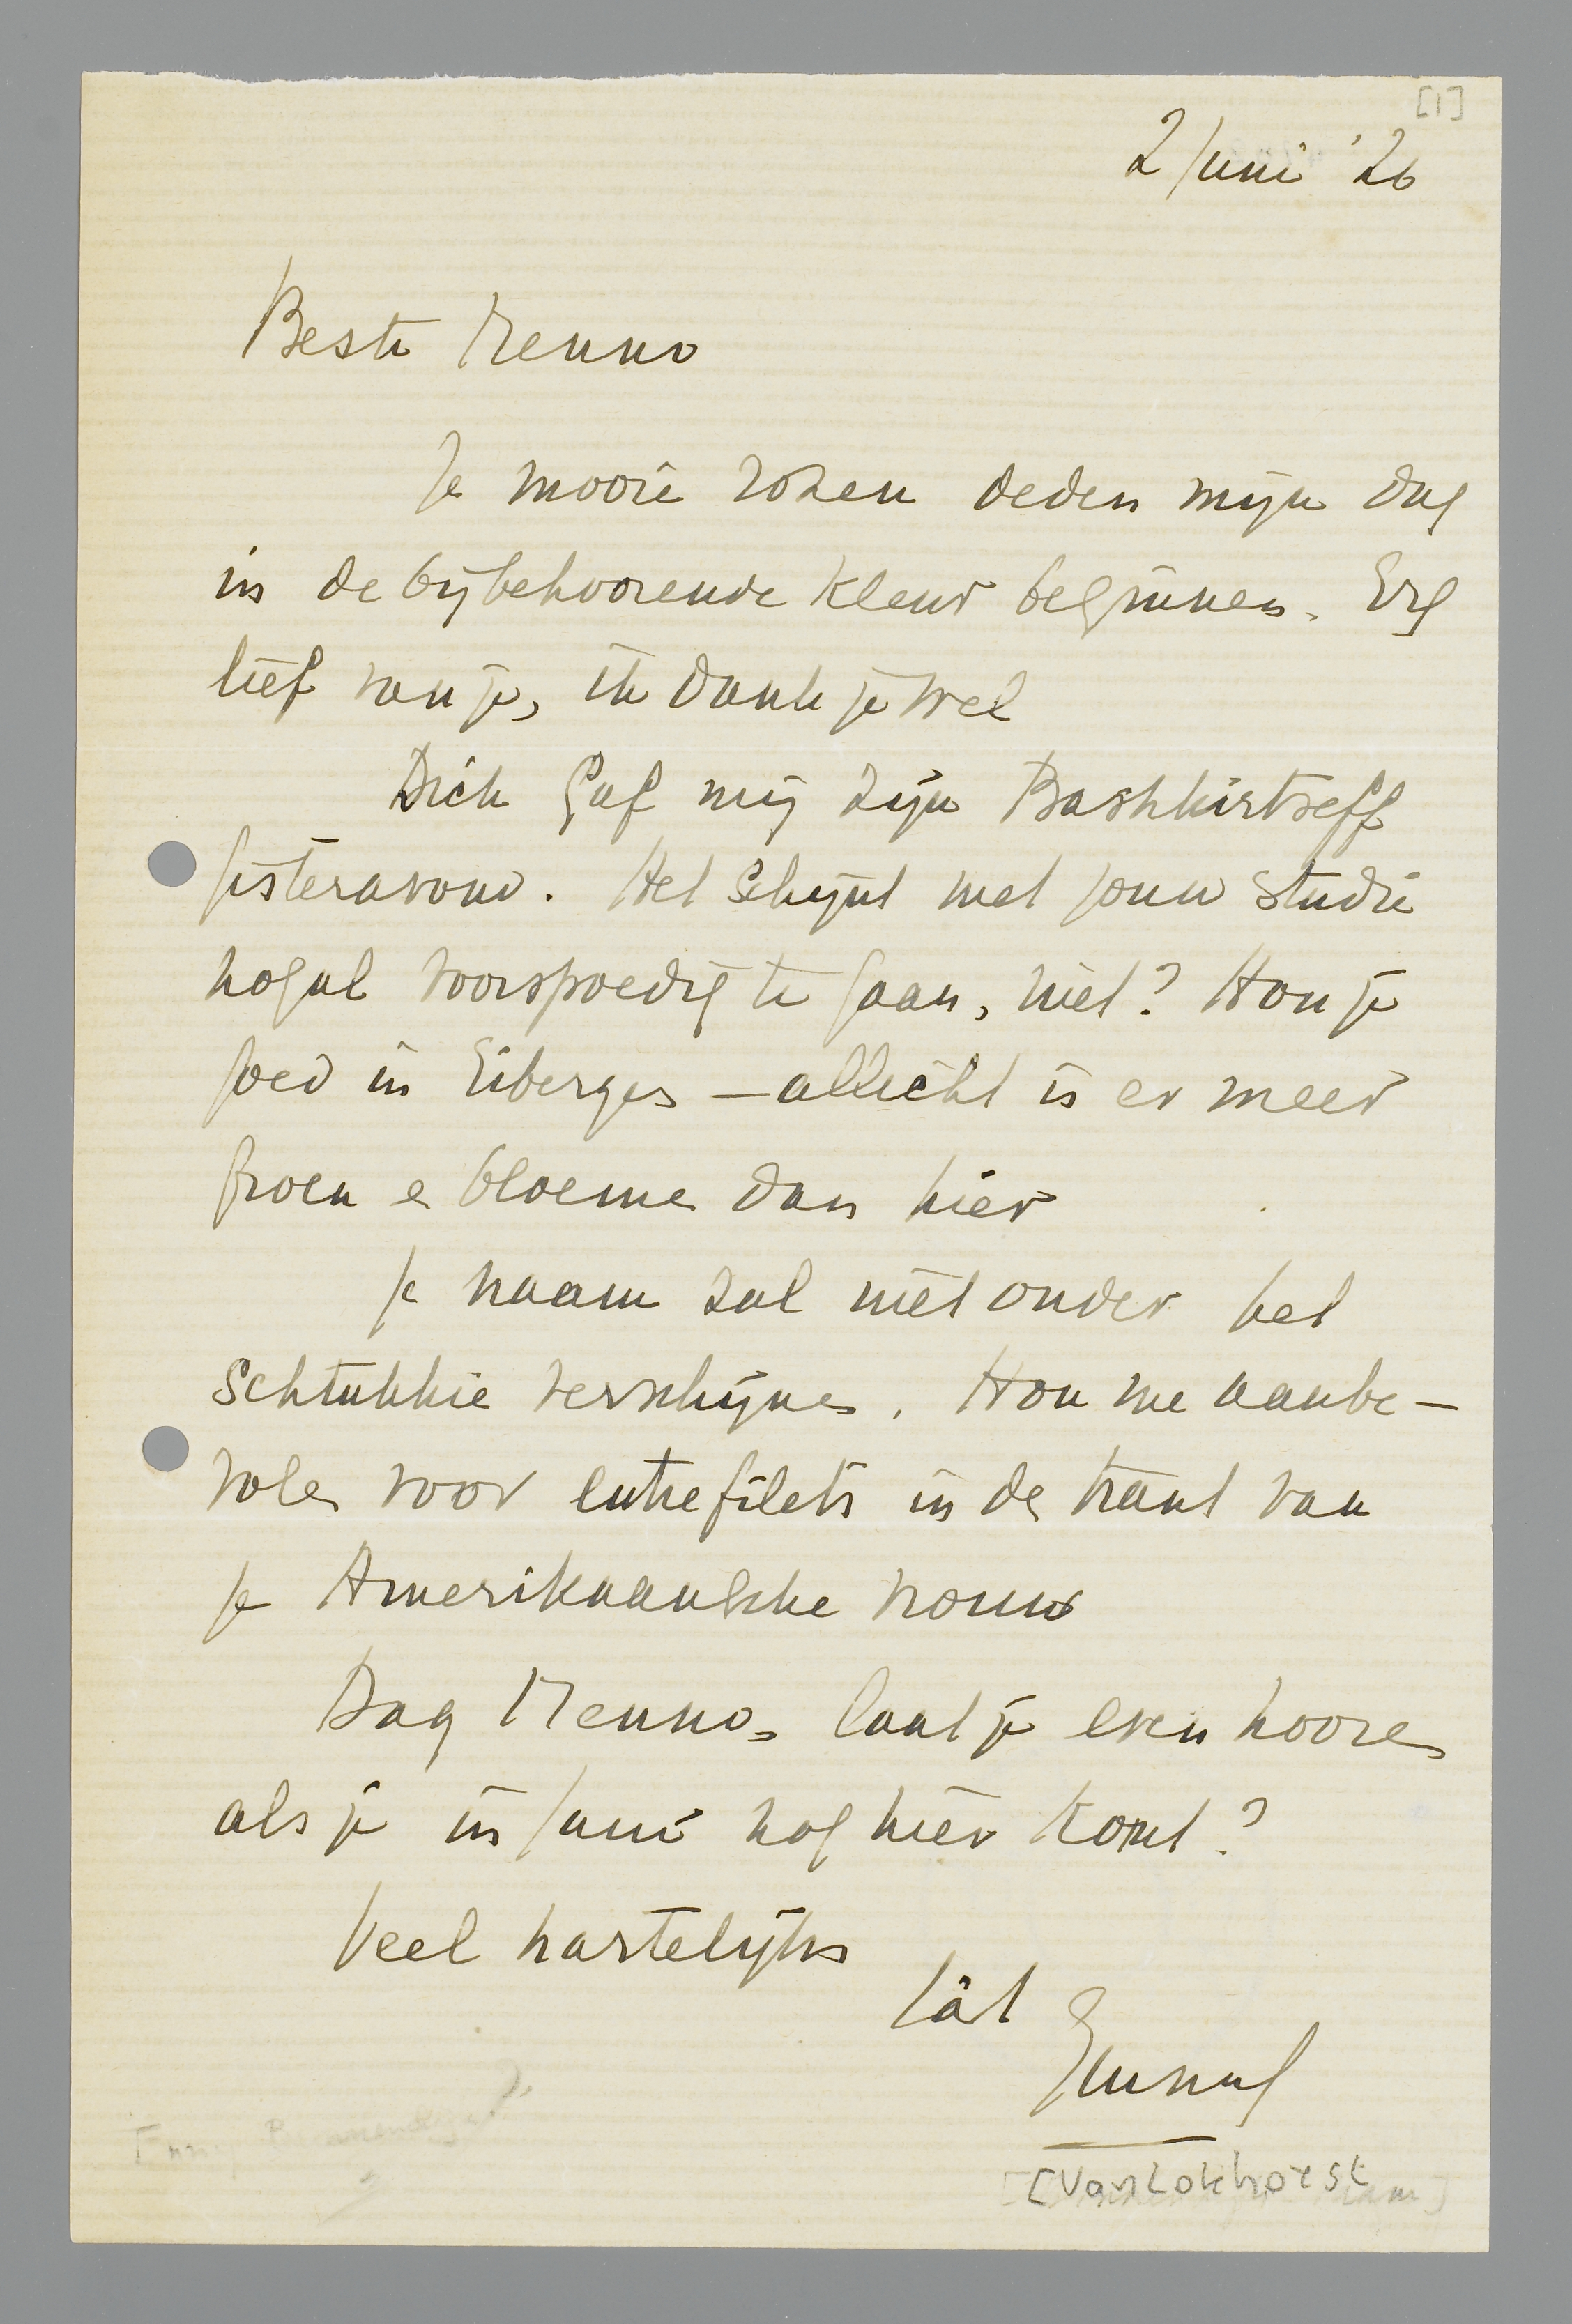 [1]
2 Juni '26
Beste Menno
Je mooie rozen deden mijn dag
in de bijbehoorende kleur beginnen. Erg
lief van je, ik dank je wel
Dick gaf mij zijn Bashkirtseff
gisteravond. Het schijnt met jouw studie
nogal voorspoedig te gaan, niet? Hou je
goed in Eibergen — allicht is er meer
groen en bloemen dan hier
Je naam zal niet onder het
Schtukkie verschijnen. Hou me aanbe-
volen voor entrefilets in de trant van
je Amerikaansche vrouw
Dag Menno, laat je even hooren
als je in Juni nog hier komt?
Veel hartelijks
tàt
Emmy
[Van Lokhorst]